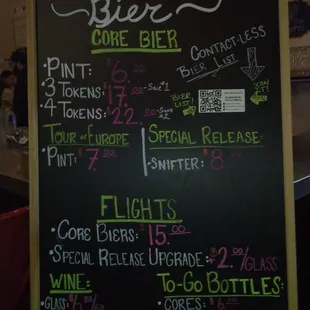 Bier
CORE BIER
CONTACT-LESS
BIER LIST
• PINT: $6.00
• 3 TOKENS: $17.00 - SAVE $1
• 4 TOKENS: $22.00 - SAVE $2
BIER LIST!
SCAN IT!
TOUR OF EUROPE
• PINT: $7.00
SPECIAL RELEASE
• SNIFTER: $8
FLIGHTS
• CORE BIERS: $15.00
• SPECIAL RELEASE UPGRADE: +$2.00/GLASS
WINE:
• GLASS:
TO-GO BOTTLES:
• CORES: